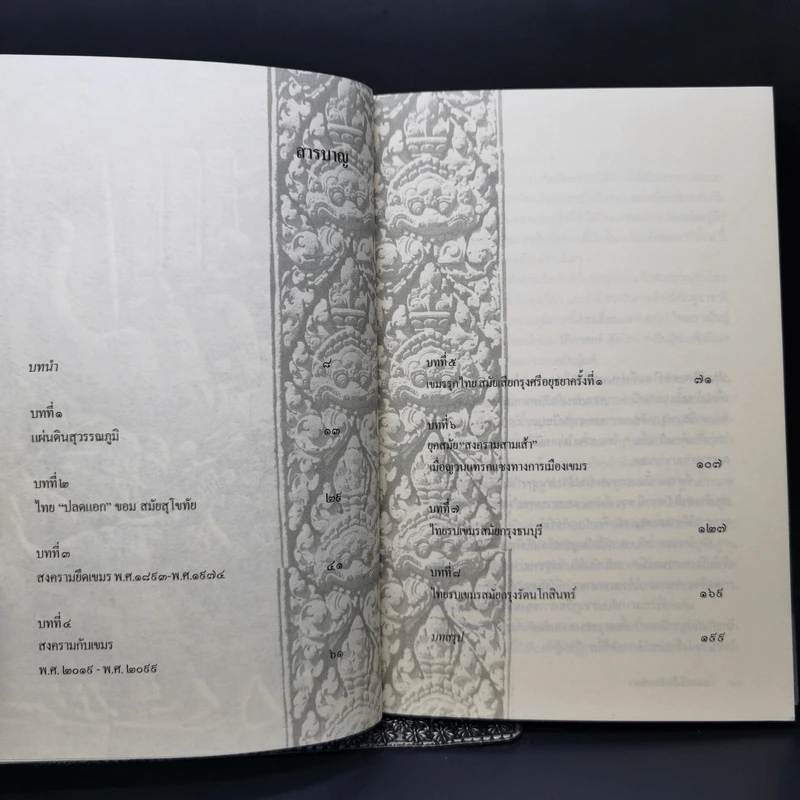 สารบาญ
บทนำ ๘
บทที่ ๑
แผ่นดินสุวรรณภูมิ ๑๓
บทที่ ๒
ไทย “ปลดแอก” ขอม สมัยสุโขทัย ๒๙
บทที่ ๓
สงครามยึดเขมร พ.ศ.๑๘๙๓-พ.ศ.๑๙๗๔ ๔๑
บทที่ ๔
สงครามกับเขมร
พ.ศ. ๒๐๑๙ - พ.ศ. ๒๐๙๙ ๖๑
บทที่ ๕
เขมรรุกไทย สมัยเสียกรุงศรีอยุธยาครั้งที่ ๑ ๗๑
บทที่ ๖
ยุคสมัย “สงครามสามเส้า”
เมื่อญวนแทรกแซงทางการเมืองเขมร ๑๐๗
บทที่ ๗
ไทยรบเขมรสมัยกรุงธนบุรี ๑๒๗
บทที่ ๘
ไทยรบเขมรสมัยกรุงรัตนโกสินทร์ ๑๖๙
บทสรุป ๑๙๙